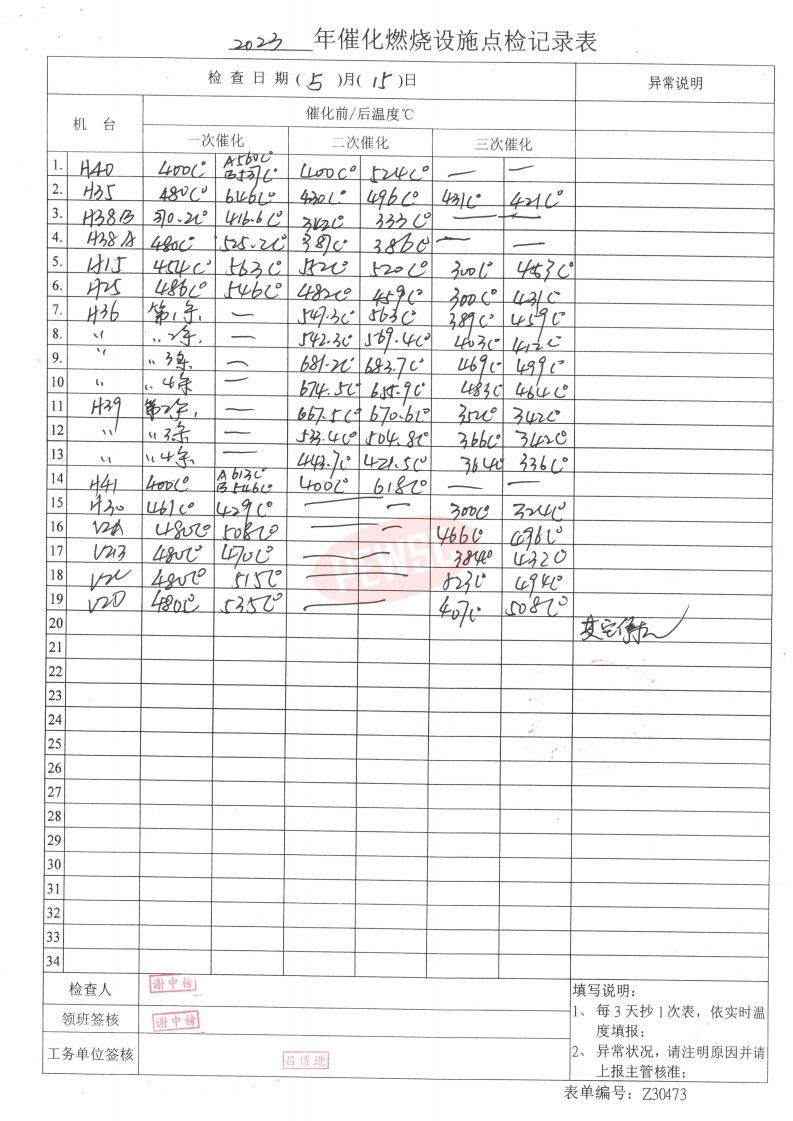 2023 年催化燃烧设施点检记录表
检查日期(5)月(15)日 异常说明
机 台 催化前/后温度℃
一次催化 二次催化 三次催化
1. H40 400℃ A560℃ B537℃ 400℃ 524℃ — —
2. H35 480℃ 646℃ 430℃ 496℃ 431℃ 421℃
3. H38B 310.2℃ 416.6℃ 342℃ 333℃ —
4. H38A 480℃ 525.2℃ 387℃ 386℃ — —
5. H15 454℃ 563℃ 552℃ 520℃ 300℃ 453℃
6. H25 486℃ 546℃ 482℃ 459℃ 300℃ 431℃
7. H36 第1条, — 547.3℃ 563℃ 389℃ 459℃
8. 〃 〃2条, — 542.3℃ 569.4℃ 403℃ 412℃
9. 〃 〃3条 — 681.2℃ 683.7℃ 469℃ 499℃
10 〃 〃4条 — 674.5℃ 655.9℃ 483℃ 464℃
11 H39 第2条, — 667.5℃ 670.6℃ 352℃ 342℃
12 〃 〃3条 — 533.4℃ 504.8℃ 366℃ 342℃
13 〃 〃4条 — 443.7℃ 421.5℃ 364℃ 336℃
14 H41 400℃ A613℃ B546℃ 400℃ 618℃
15 H30 461℃ 429℃ — — 300℃ 324℃
16 V2A 480℃ 508℃ — — 466℃ 496℃
17 V2B 480℃ 470℃ — — 384℃ 432℃
18 V2C 480℃ 515℃ — — 523℃ 494℃
19 V2D 480℃ 535℃ — — 407℃ 508℃
20
21
22
23
24
25
26
27
28
29
30
31
32
33
34
PEWSC
检查人 谢中榜
领班签核 谢中榜
工务单位签核 吕博进
填写说明:
1、每3天抄1次表，依实时温
度填报;
2、异常状况，请注明原因并请
上报主管核准;
表单编号: Z30473